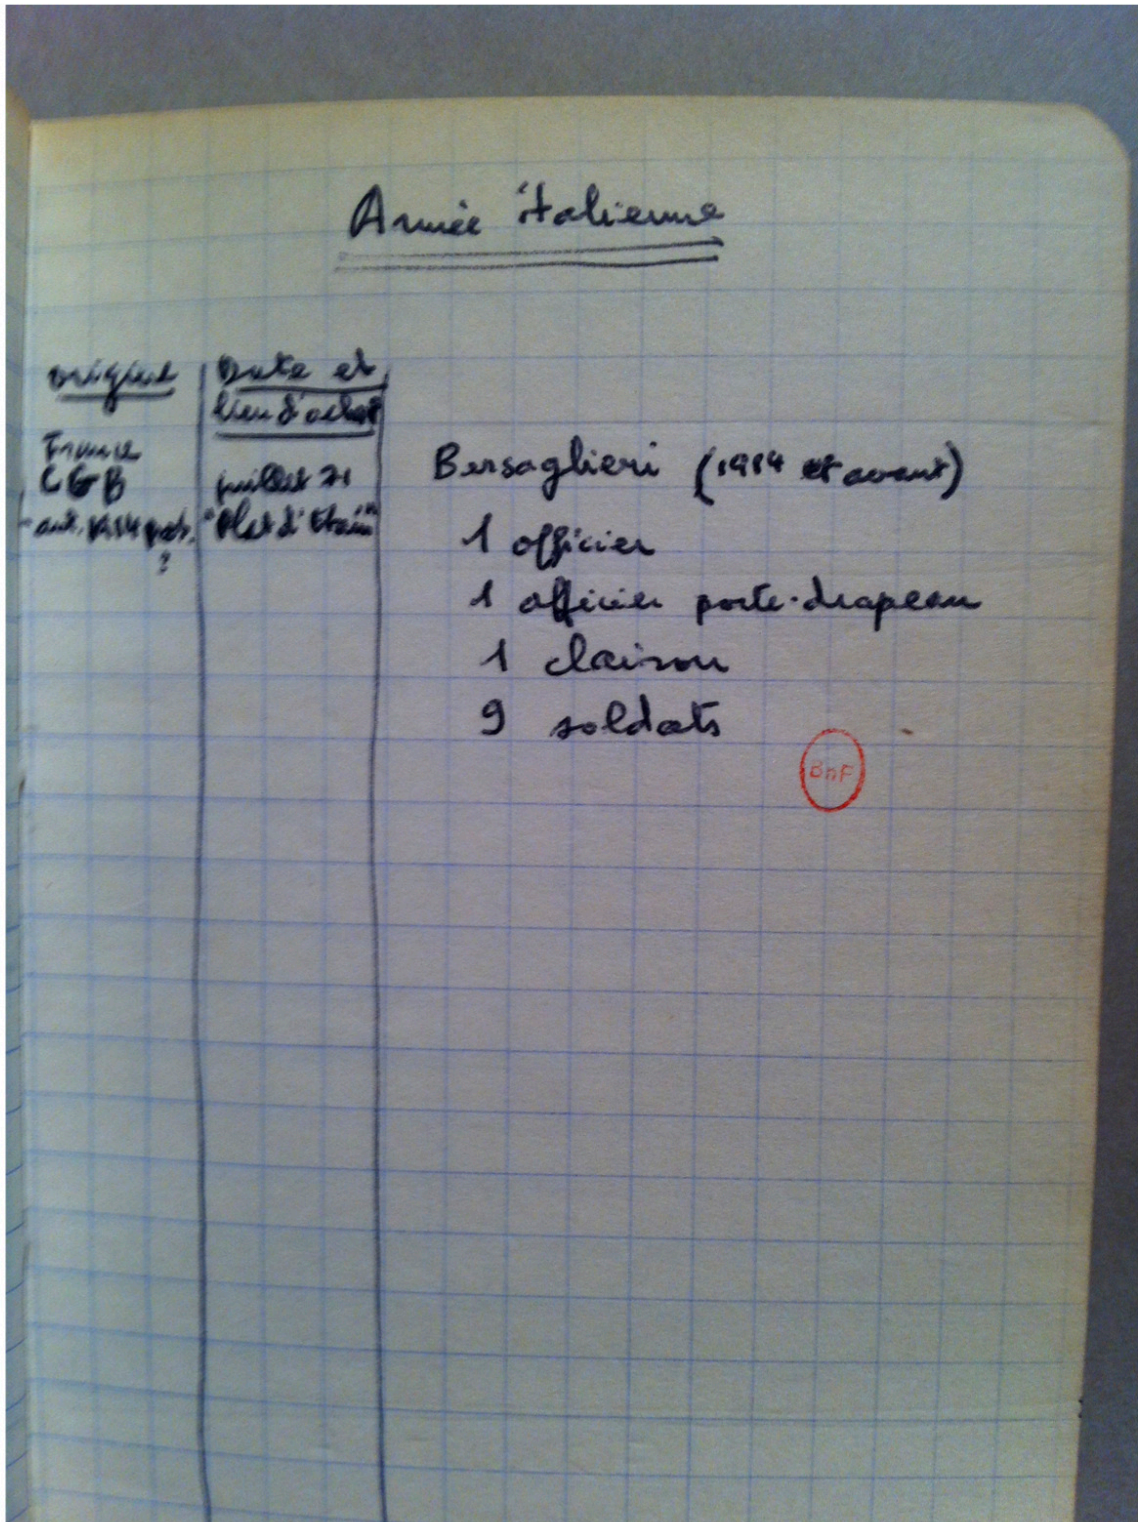 Armée italienne
origine
Date et
lieu d'achat
France
CGB
ant. 1914 prob.
?
juillet 71
"Plat d'Etain"
Bersaglieri (1914 et avant)
1 officier
1 officier porte-drapeau
1 clairon
9 soldats
BnF